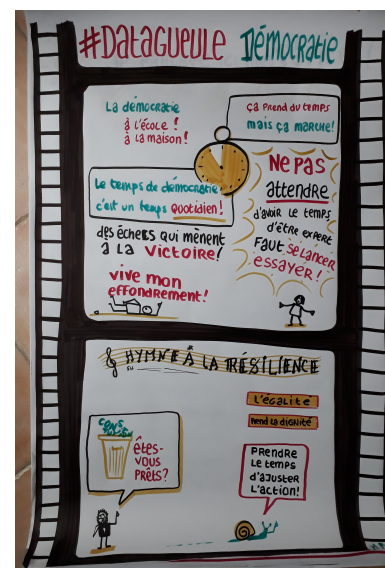 #DATAGUEULE Démocratie
La démocratie
à l'école !
à la maison !
ça prend du temps
mais ça marche!
Le temps de démocratie
c'est un temps quotidien !
Ne pas
attendre
d'avoir le temps
d'être expert
faut se lancer
essayer !
des échecs qui mènent
à la victoire !
vive mon
effondrement !
HYMNE À LA RÉSILIENCE
l'égalité
rend la dignité
êtes-
vous
prêts ?
prendre
le temps
d'ajuster
l'action!